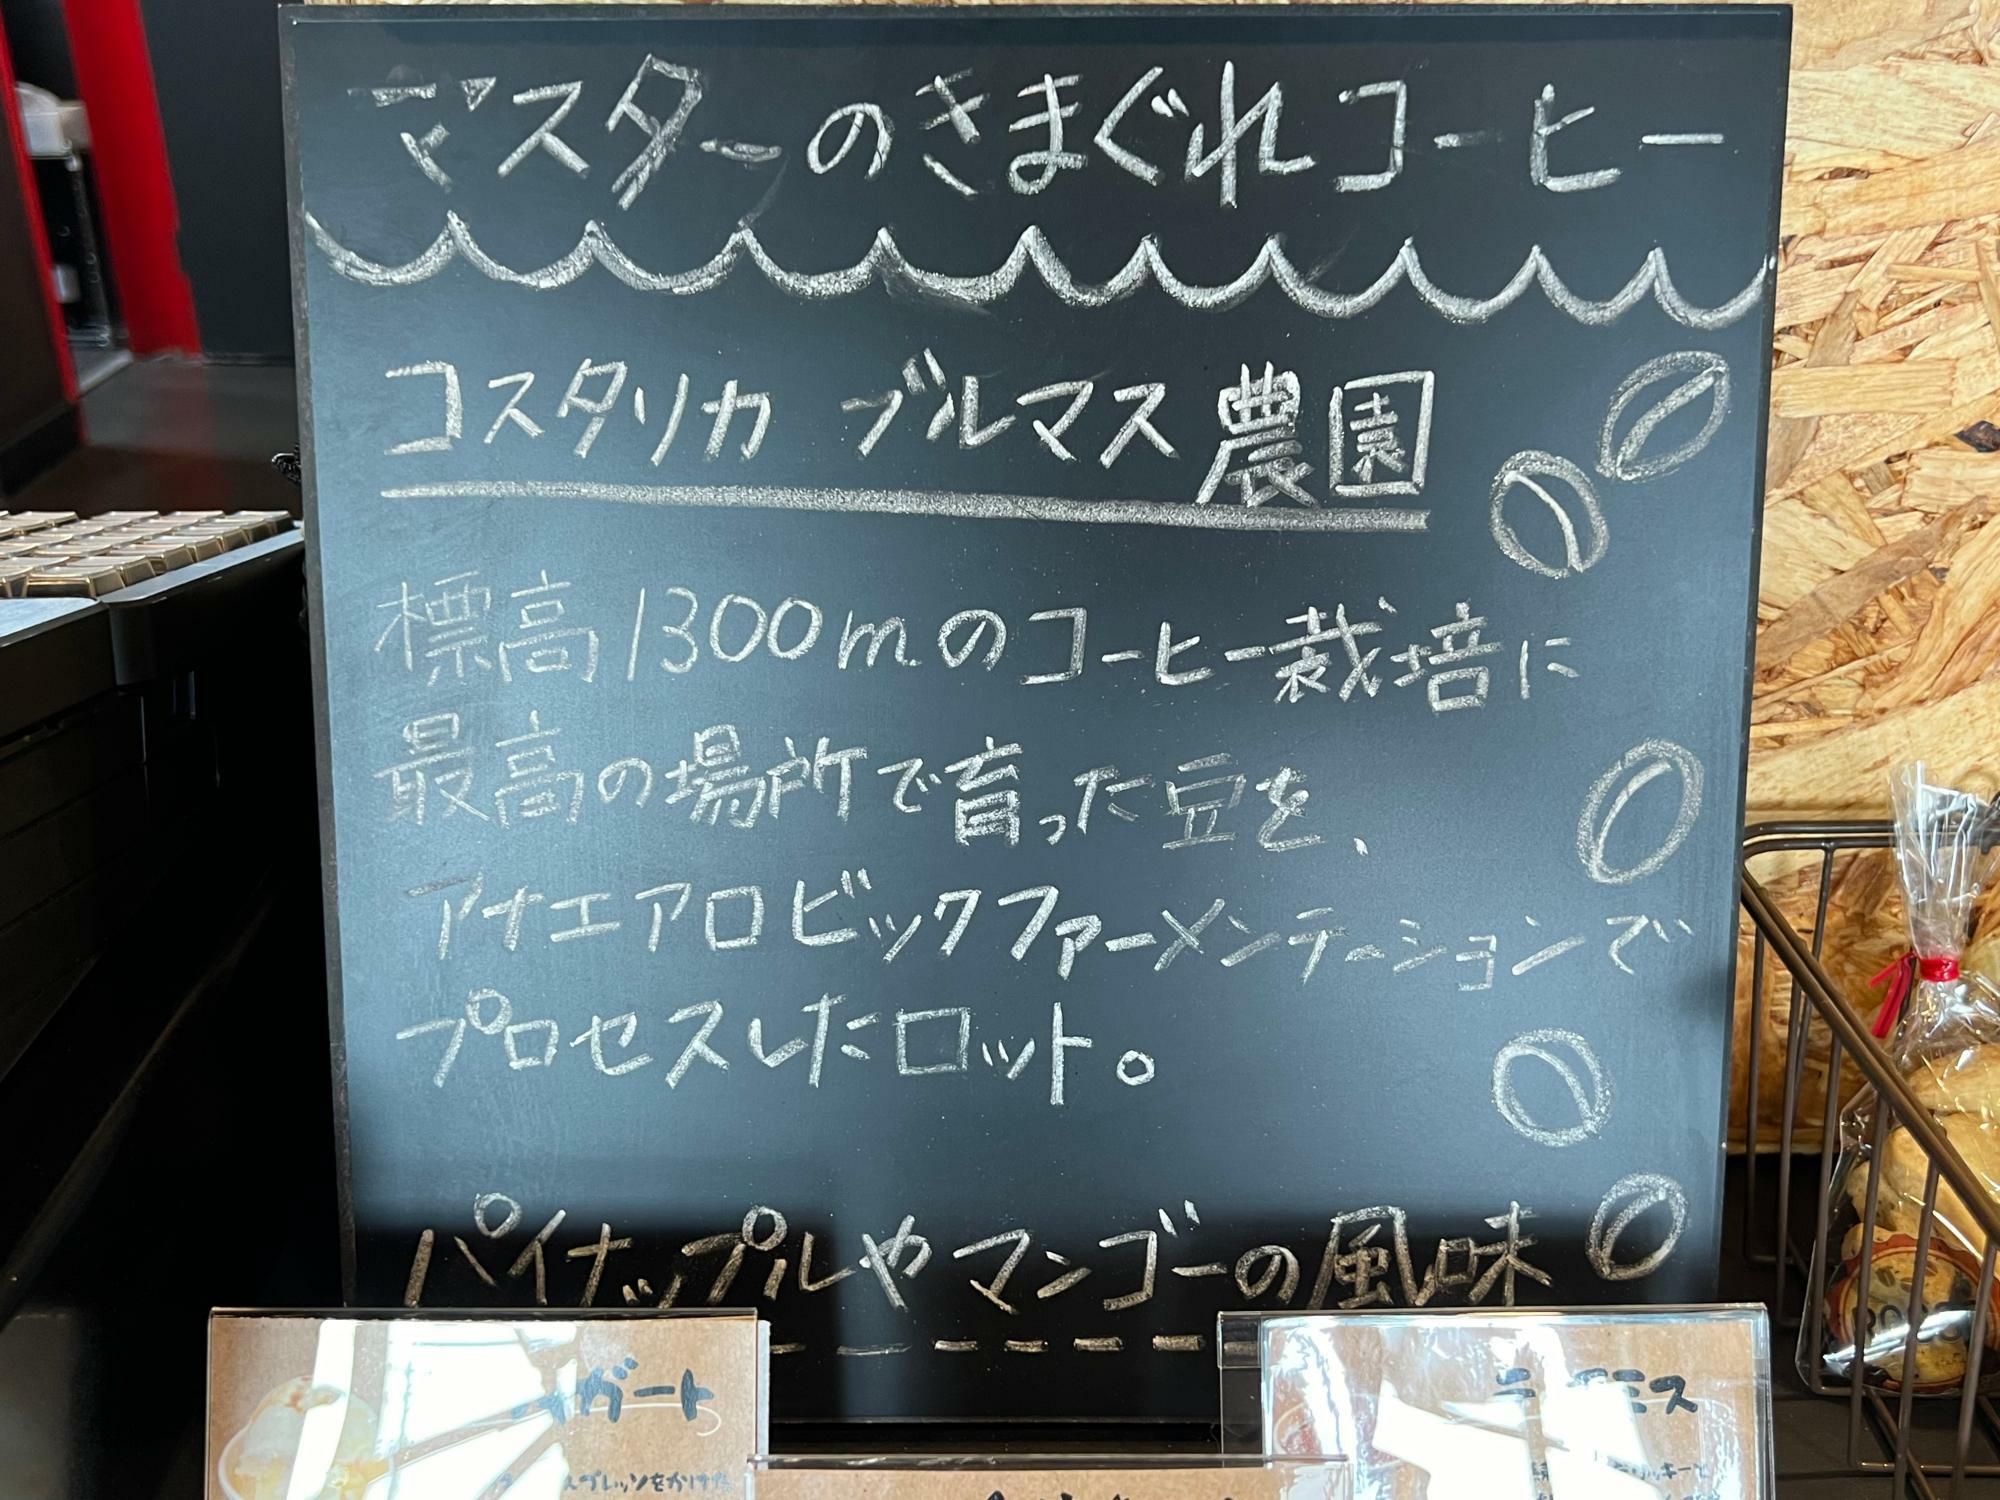 マスターのきまぐれコーヒー
コスタリカ ブルマス農園
標高1300mのコーヒー栽培に
最高の場所で育った豆を、
アナエアロビックファーメンテーションで
プロセスしたロット。
パイナップルやマンゴーの風味